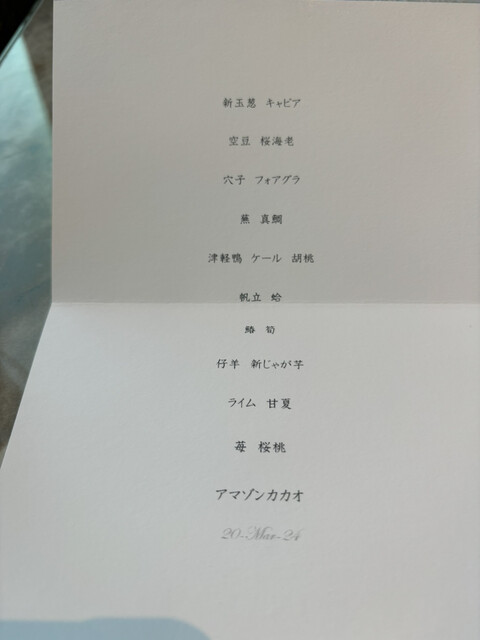 新玉葱 キャビア
空豆 桜海老
穴子 フォアグラ
蕪 真鯛
津軽鴨 ケール 胡桃
帆立 蛤
鰆 筍
仔羊 新じゃが芋
ライム 甘夏
苺 桜桃
アマゾンカカオ
20-Mar-24